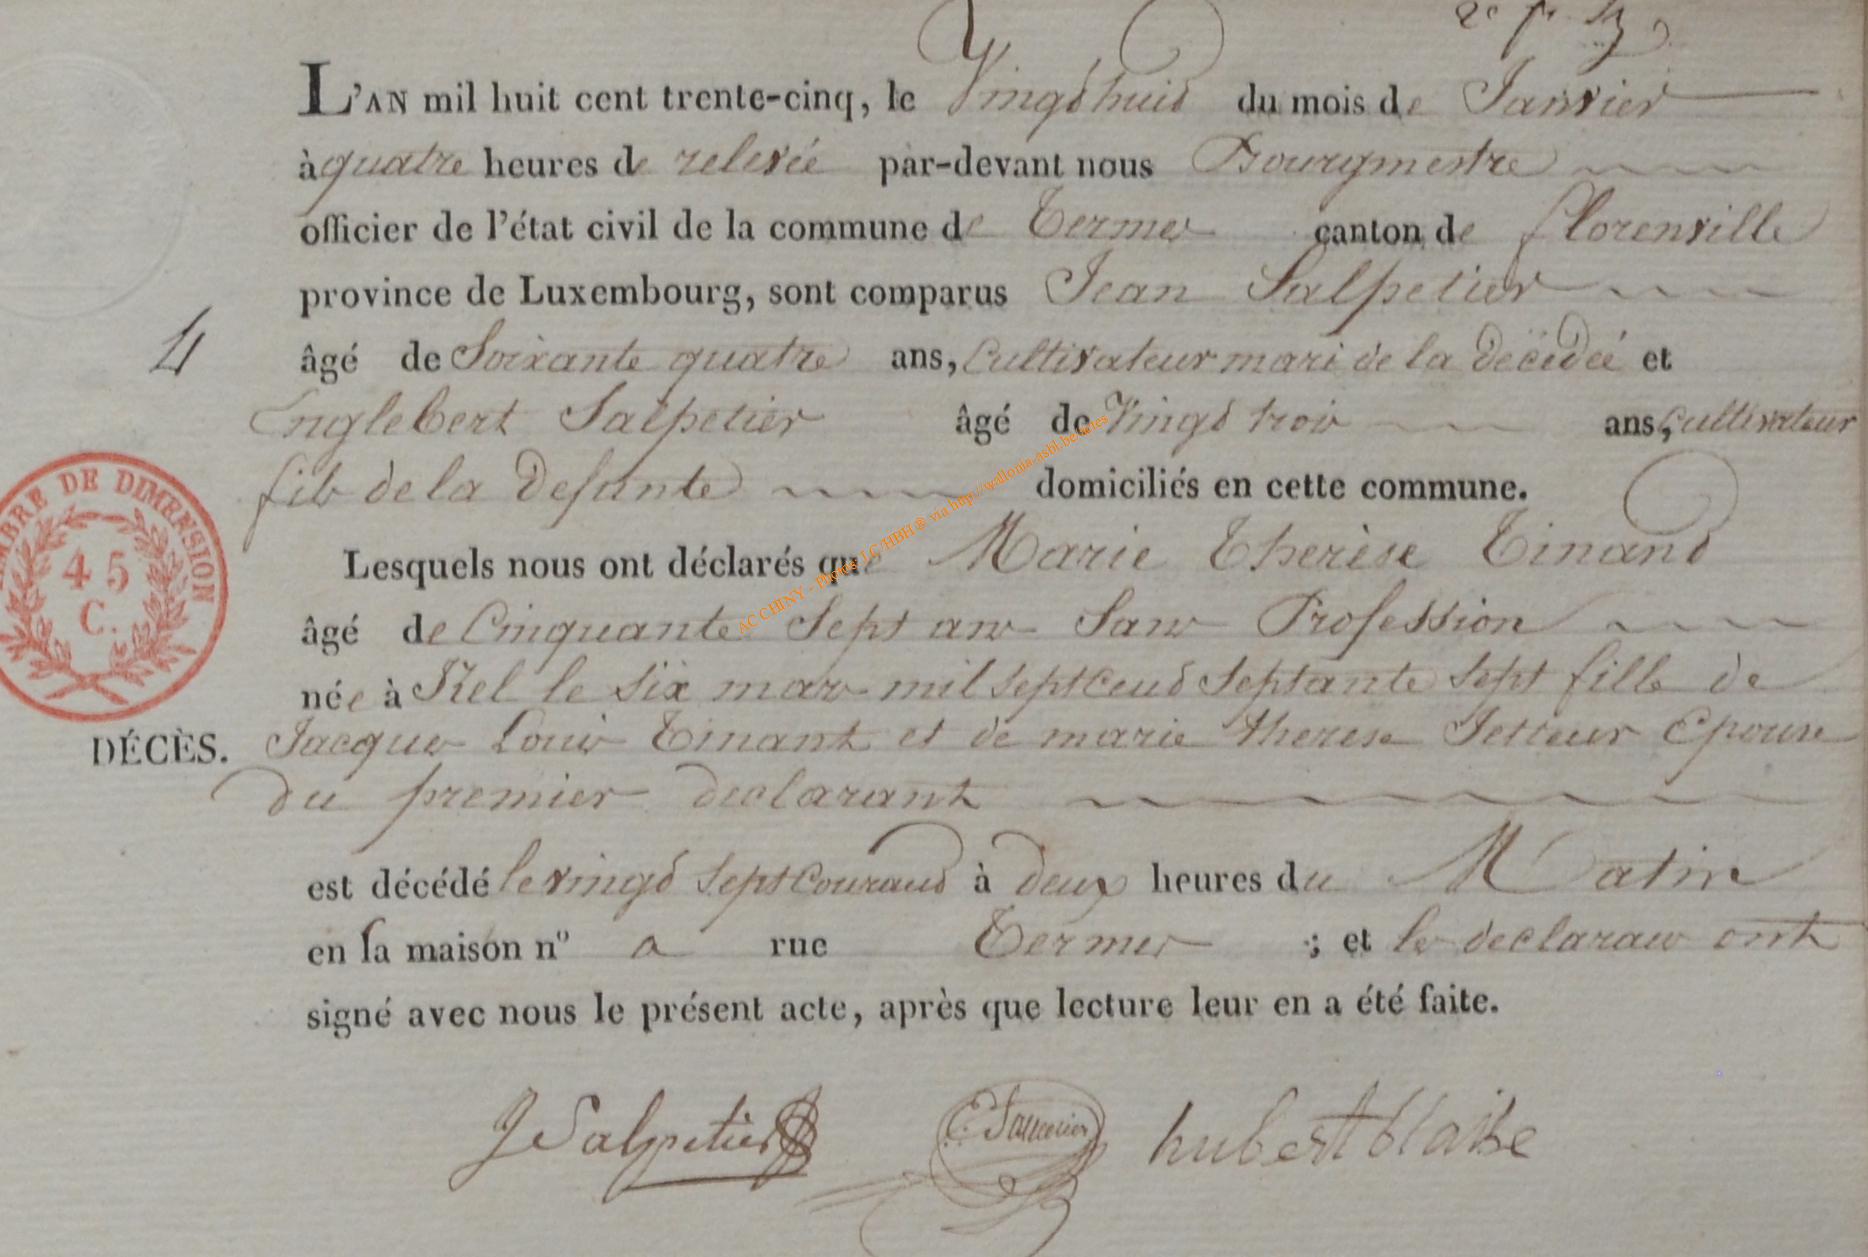 L'AN mil huit cent trente-cinq, le Vingt huit du mois de Janvier
à quatre heures de relevée par-devant nous Bourgmestre
officier de l'état civil de la commune de Termes canton de florenville
province de Luxembourg, sont comparus Jean Salpetier
4
âgé de Soixante quatre ans, Cultivateur mari de la décédée et
Englebert Salpetier âgé de Vingt trois ans, Cultivateur
fils de la Defunte domiciliés en cette commune.
TIMBRE DE DIMENSION
45
C.
Lesquels nous ont déclarés que Marie Therèse Tinant
âgé de Cinquante Sept ans Sans Profession
née à le six mars mil Sept Cent Septante Sept fille de
DÉCÈS.
Jacques Louis Tinant et de marie therese Epouse
du premier declarant
est décédé le vingt Sept Courant à deux heures du Matin
en sa maison n° a rue Termes ; et les declarans ont
signé avec nous le présent acte, après que lecture leur en a été faite.
J Salpetier hubert blaise
AC CHINY - Photos LC/HBH ® via http://wallonia.asbl.be/actes